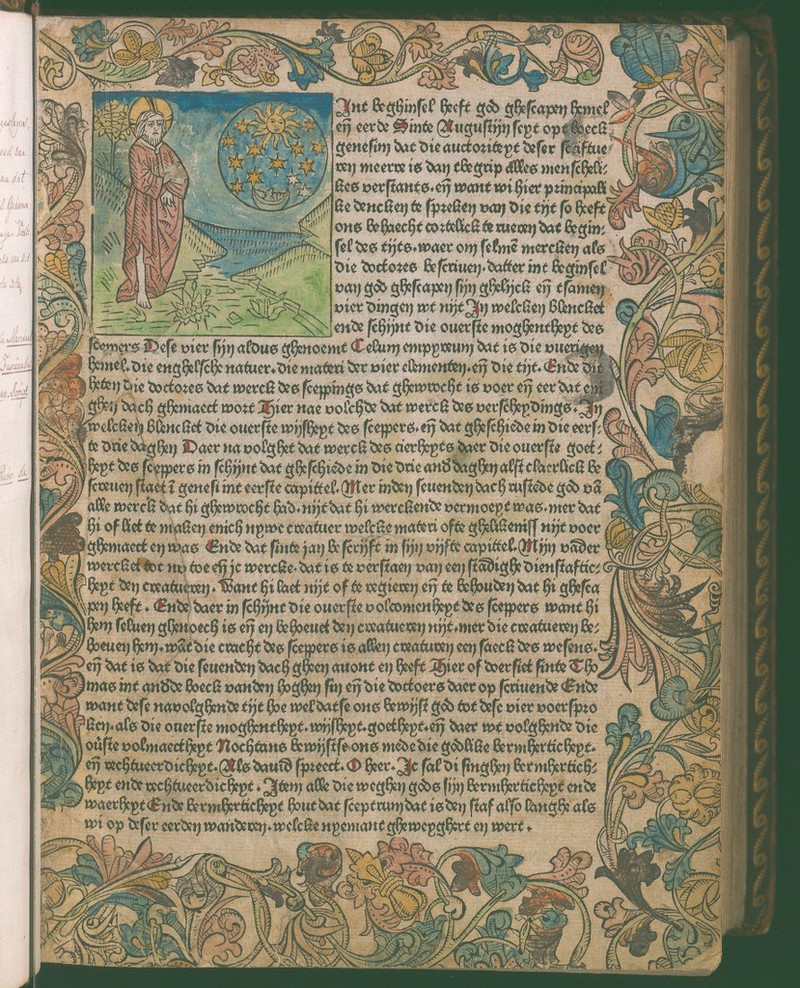 Int beghinsel heeft god ghescapen hemel
en̄ eerde Sinte Augustijn seyt opt boeck
genesim dat die auctoriteyt deser scriftue
ren meerre is dan tbegrip alles menscheli⸗
kes verstants. en̄ want wi hier principali
ke dencken te spreken van die tijt so heeft
ons behaecht cortelick te rueren dat begin⸗
sel des tijts. waer om selmē mercken als
die doctores bescriuen. datter int beginsel
van god ghescapen sijn ghelijck en̄ tsamen
vier dingen wt nijt Jn welcken blencket
ende schijnt die ouerste moghentheyt des
sceppers Dese vier sijn aldus ghenoemt Celum empyreum dat is die vuerigen
hemel. die enghelsche natuer. die materi der vier elementen. en̄ die tijt. Ende dit
heten die doctores dat werck des sceppings dat ghewrocht is voer en̄ eer dat eni
ghen dach ghemaect wort Hier nae volchde dat werck des verscheydings. Jn
welcken blencket die ouerste wijsheyt des sceppers. en̄ dat gheschiede in die eers⸗
te drie daghen Daer na volghet dat werck des cierheyts daer die ouerste goet⸗
heyt des sceppers in schijnt dat gheschiede in die drie and̄ daghen alst claerlick be
screuen staet ī genesi int eerste capittel. Mer inden seuenden dach rustede god vā
alle werck dat hi ghewrocht had. nijt dat hi werckende vermoeyt was. mer dat
hi of liet te maken enich nywe creatuer welcke materi ofte ghelikeniss nijt voer
ghemaect en was Ende dat sinte jan bescrijft in sijn vijfte capittel. Mijn vāder
wercket tot nu toe en̄ jc wercke. dat is te verstaen van een stādighe dienstaftic⸗
heyt den creatueren. Want hi laet nijt of te regieren en̄ te behouden dat hi ghesca
pen heeft. Ende daer in schijnt die ouerste volcomenheyt des sceppers want hi
hem seluen ghenoech is en̄ en behoeuet den creatueren nijt. mer die creatueren be⸗
hoeuen hem. wāt die cracht des sceppers is allen creaturen een saeck des wesens.
en̄ dat is dat die seuenden dach gheen auont en heeft Hier of doersiet sinte Tho
mas int and̄de boeck vanden hoghen sin en̄ die doctoers daer op scriuende Ende
want dese navolghende tijt hoe wel datse ons bewijst god tot dese vier voerspro
ken. als die ouerste moghentheyt. wijsheyt. goetheyt. en̄ daer wt volghende die
ou̅ste volmaectheyt Nochtans bewijstse ons mede die godlike bermherticheyt.
en̄ rechtueerdicheyt. Als dauid spreect. O heer. Jc sal di singhen bermhertich⸗
heyt ende rechtueerdicheyt. Jtem alle die weghen gods sijn bermherticheyt ende
waerheyt Ende bermherticheyt hout dat sceptrum dat is den staf also langhe als
wi op deser eerden wanderen. welcke nyemant gheweyghert en wert.